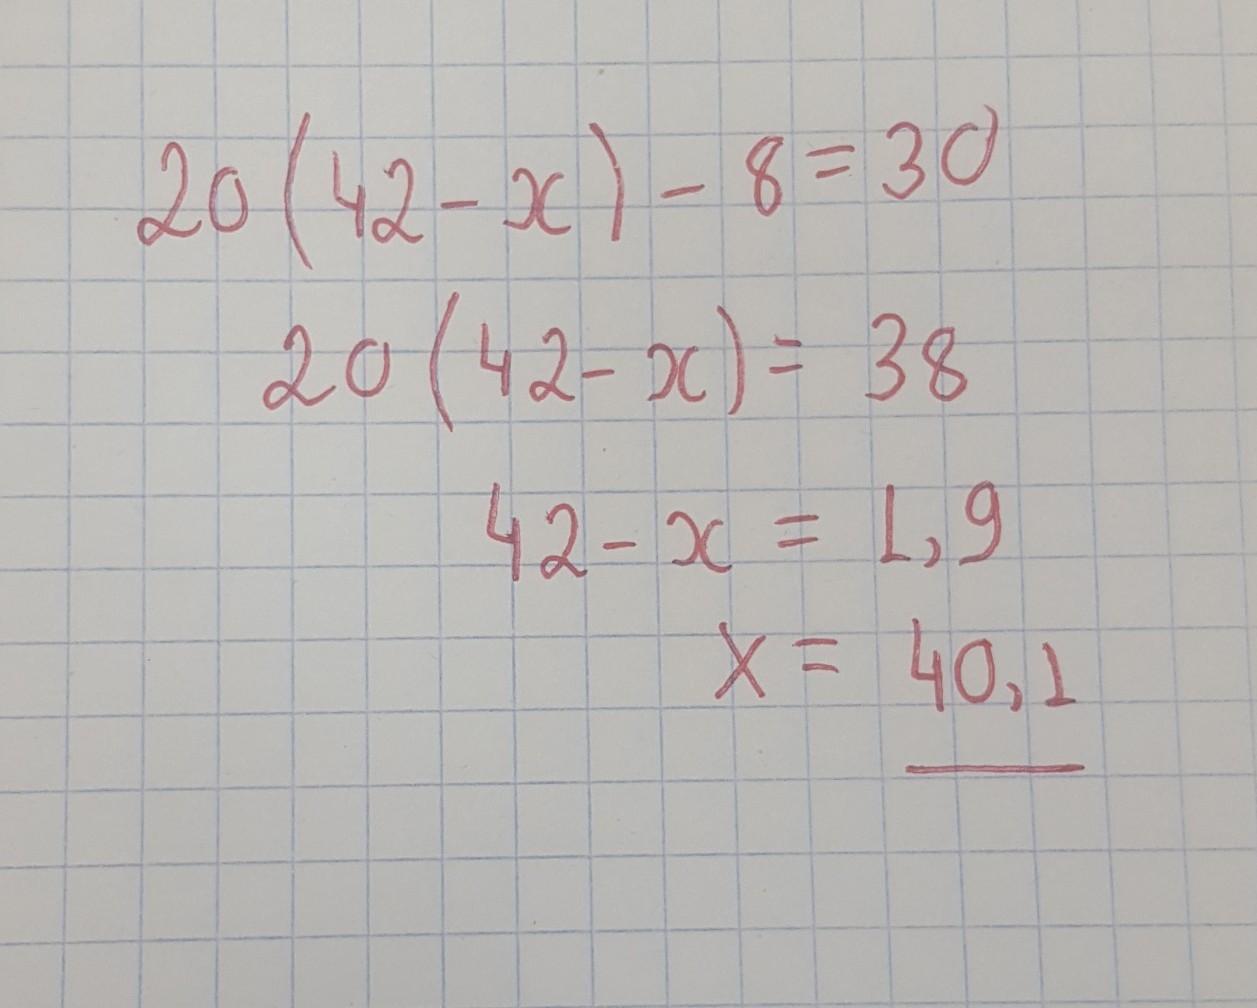 20(42-x)-8=30
20(42-x)=38
42-x=1,9
x=40,1